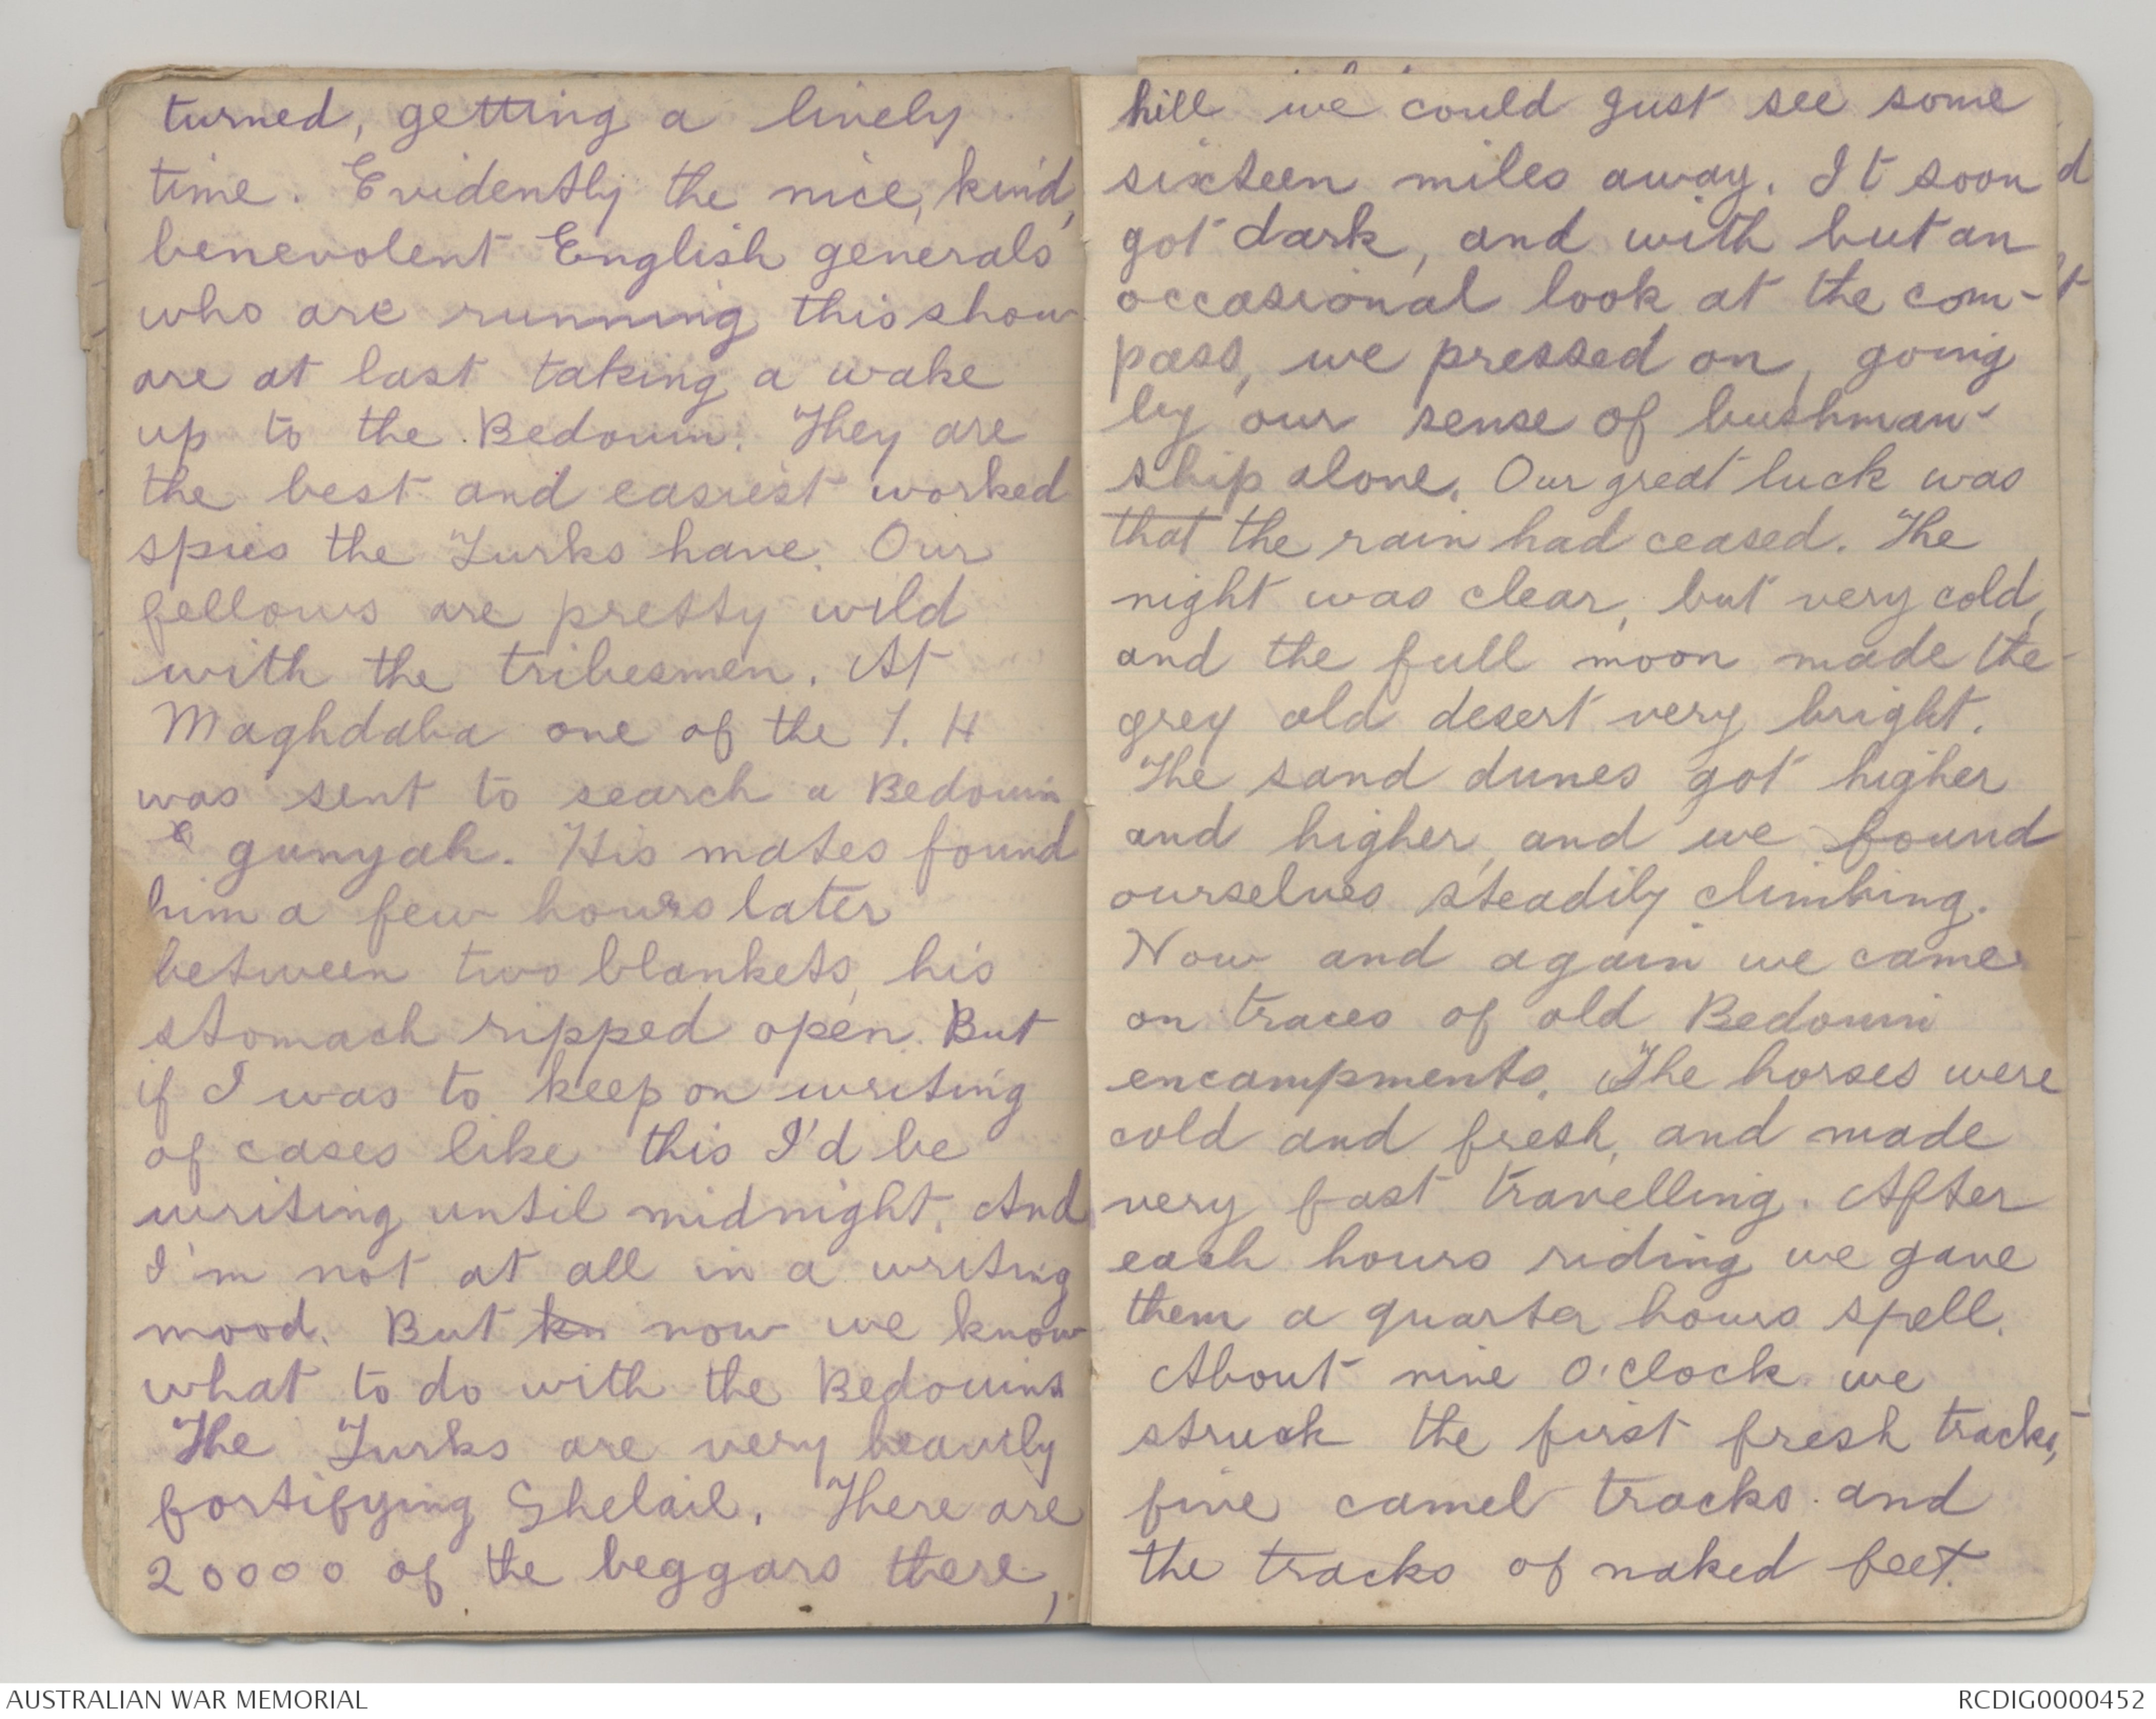 turned, getting a lively
time. Evidently the nice, kind,
benevolent English generals
who are running this show
are at last taking a wake
up to the Bedouin. They are
the best and easiest worked
spies the Turks have. Our
fellows are pretty wild
with the tribesmen. At
Maghdaba one of the I. H
was sent to search a Bedouin
gunyah. His mates found
him a few hours later
between two blankets, his
stomach ripped open. But
if I was to keep on writing
of cases like this I'd be
writing until midnight. And
I'm not at all in a writing
mood. But kn now we know
what to do with the Bedouins
The Turks are very heavily
fortifying Shelail. There are
20000 of the beggars there,
hill we could just see some
sixteen miles away. It soon
got dark, and with but an
occasional look at the com-
pass, we pressed on, going
by our sense of bushman-
ship alone. Our great luck was
that the rain had ceased. The
night was clear, but very cold,
and the full moon made the
grey old desert very bright.
The sand dunes got higher
and higher, and we found
ourselves steadily climbing.
Now and again we came
on traces of old Bedouin
encampments. The horses were
cold and fresh, and made
very fast travelling. After
each hours riding we gave
them a quarter hours spell.
About nine o'clock we
struck the first fresh tracks,
five camel tracks and
the tracks of naked feet.
AUSTRALIAN WAR MEMORIAL
RCDIG0000452